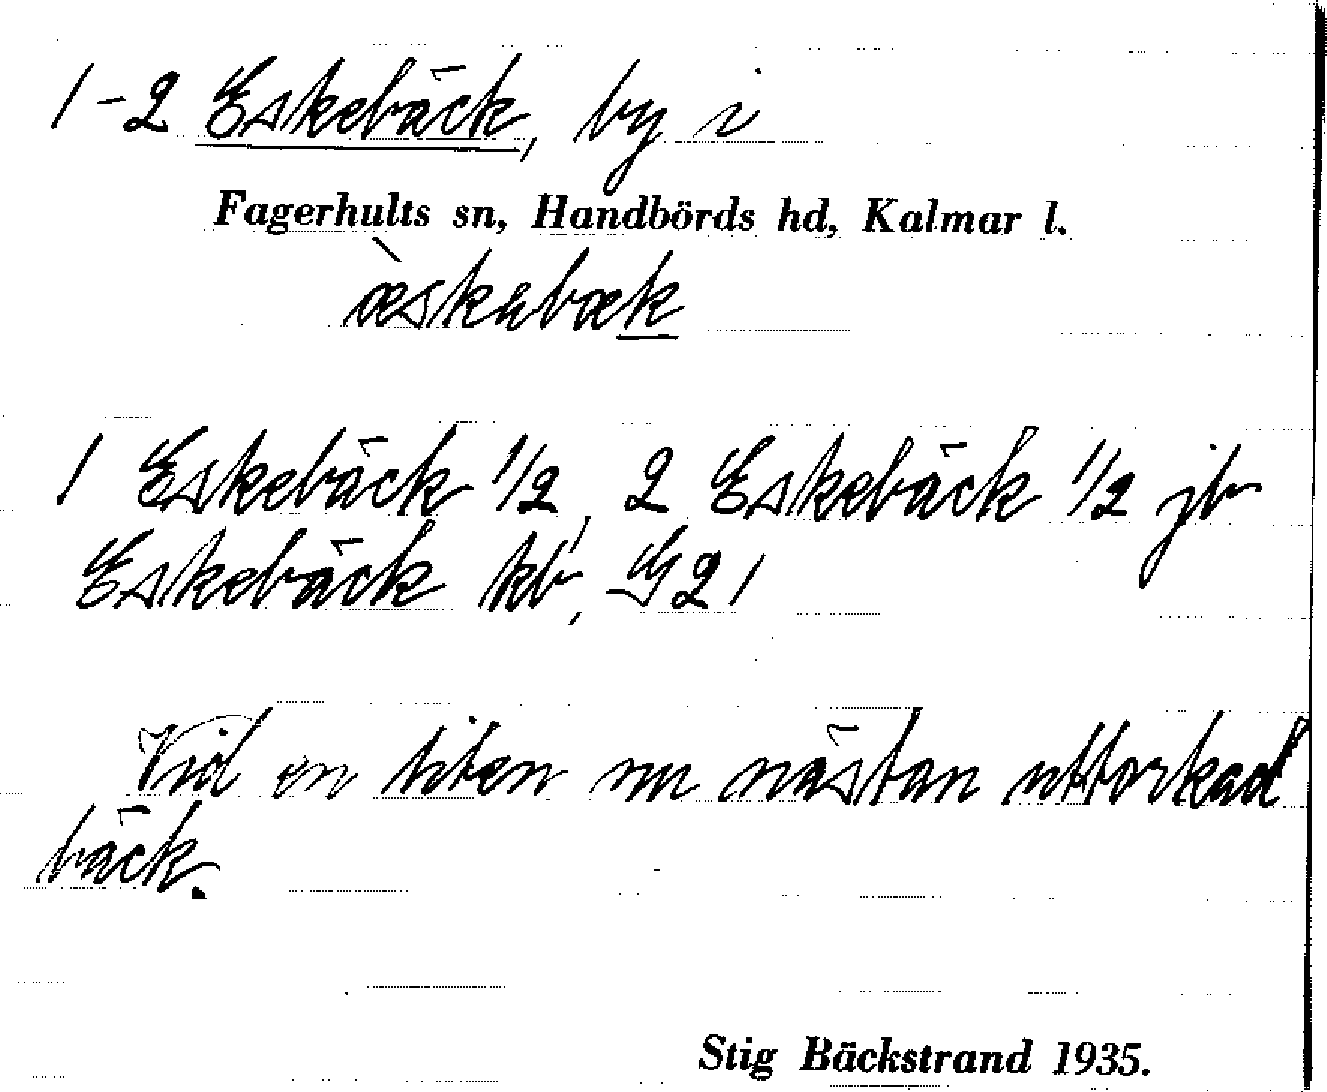 1-2 Eskebäck, by i
Fagerhults sn, Handbörds hd, Kalmar l.
æ̀skəbæk
1 Eskebäck 1/2, 2 Eskebäck 1/2 jb
Eskebäck kb, G21
Vid en liten nu nästan uttorkad
bäck.
Stig Bäckstrand 1935.